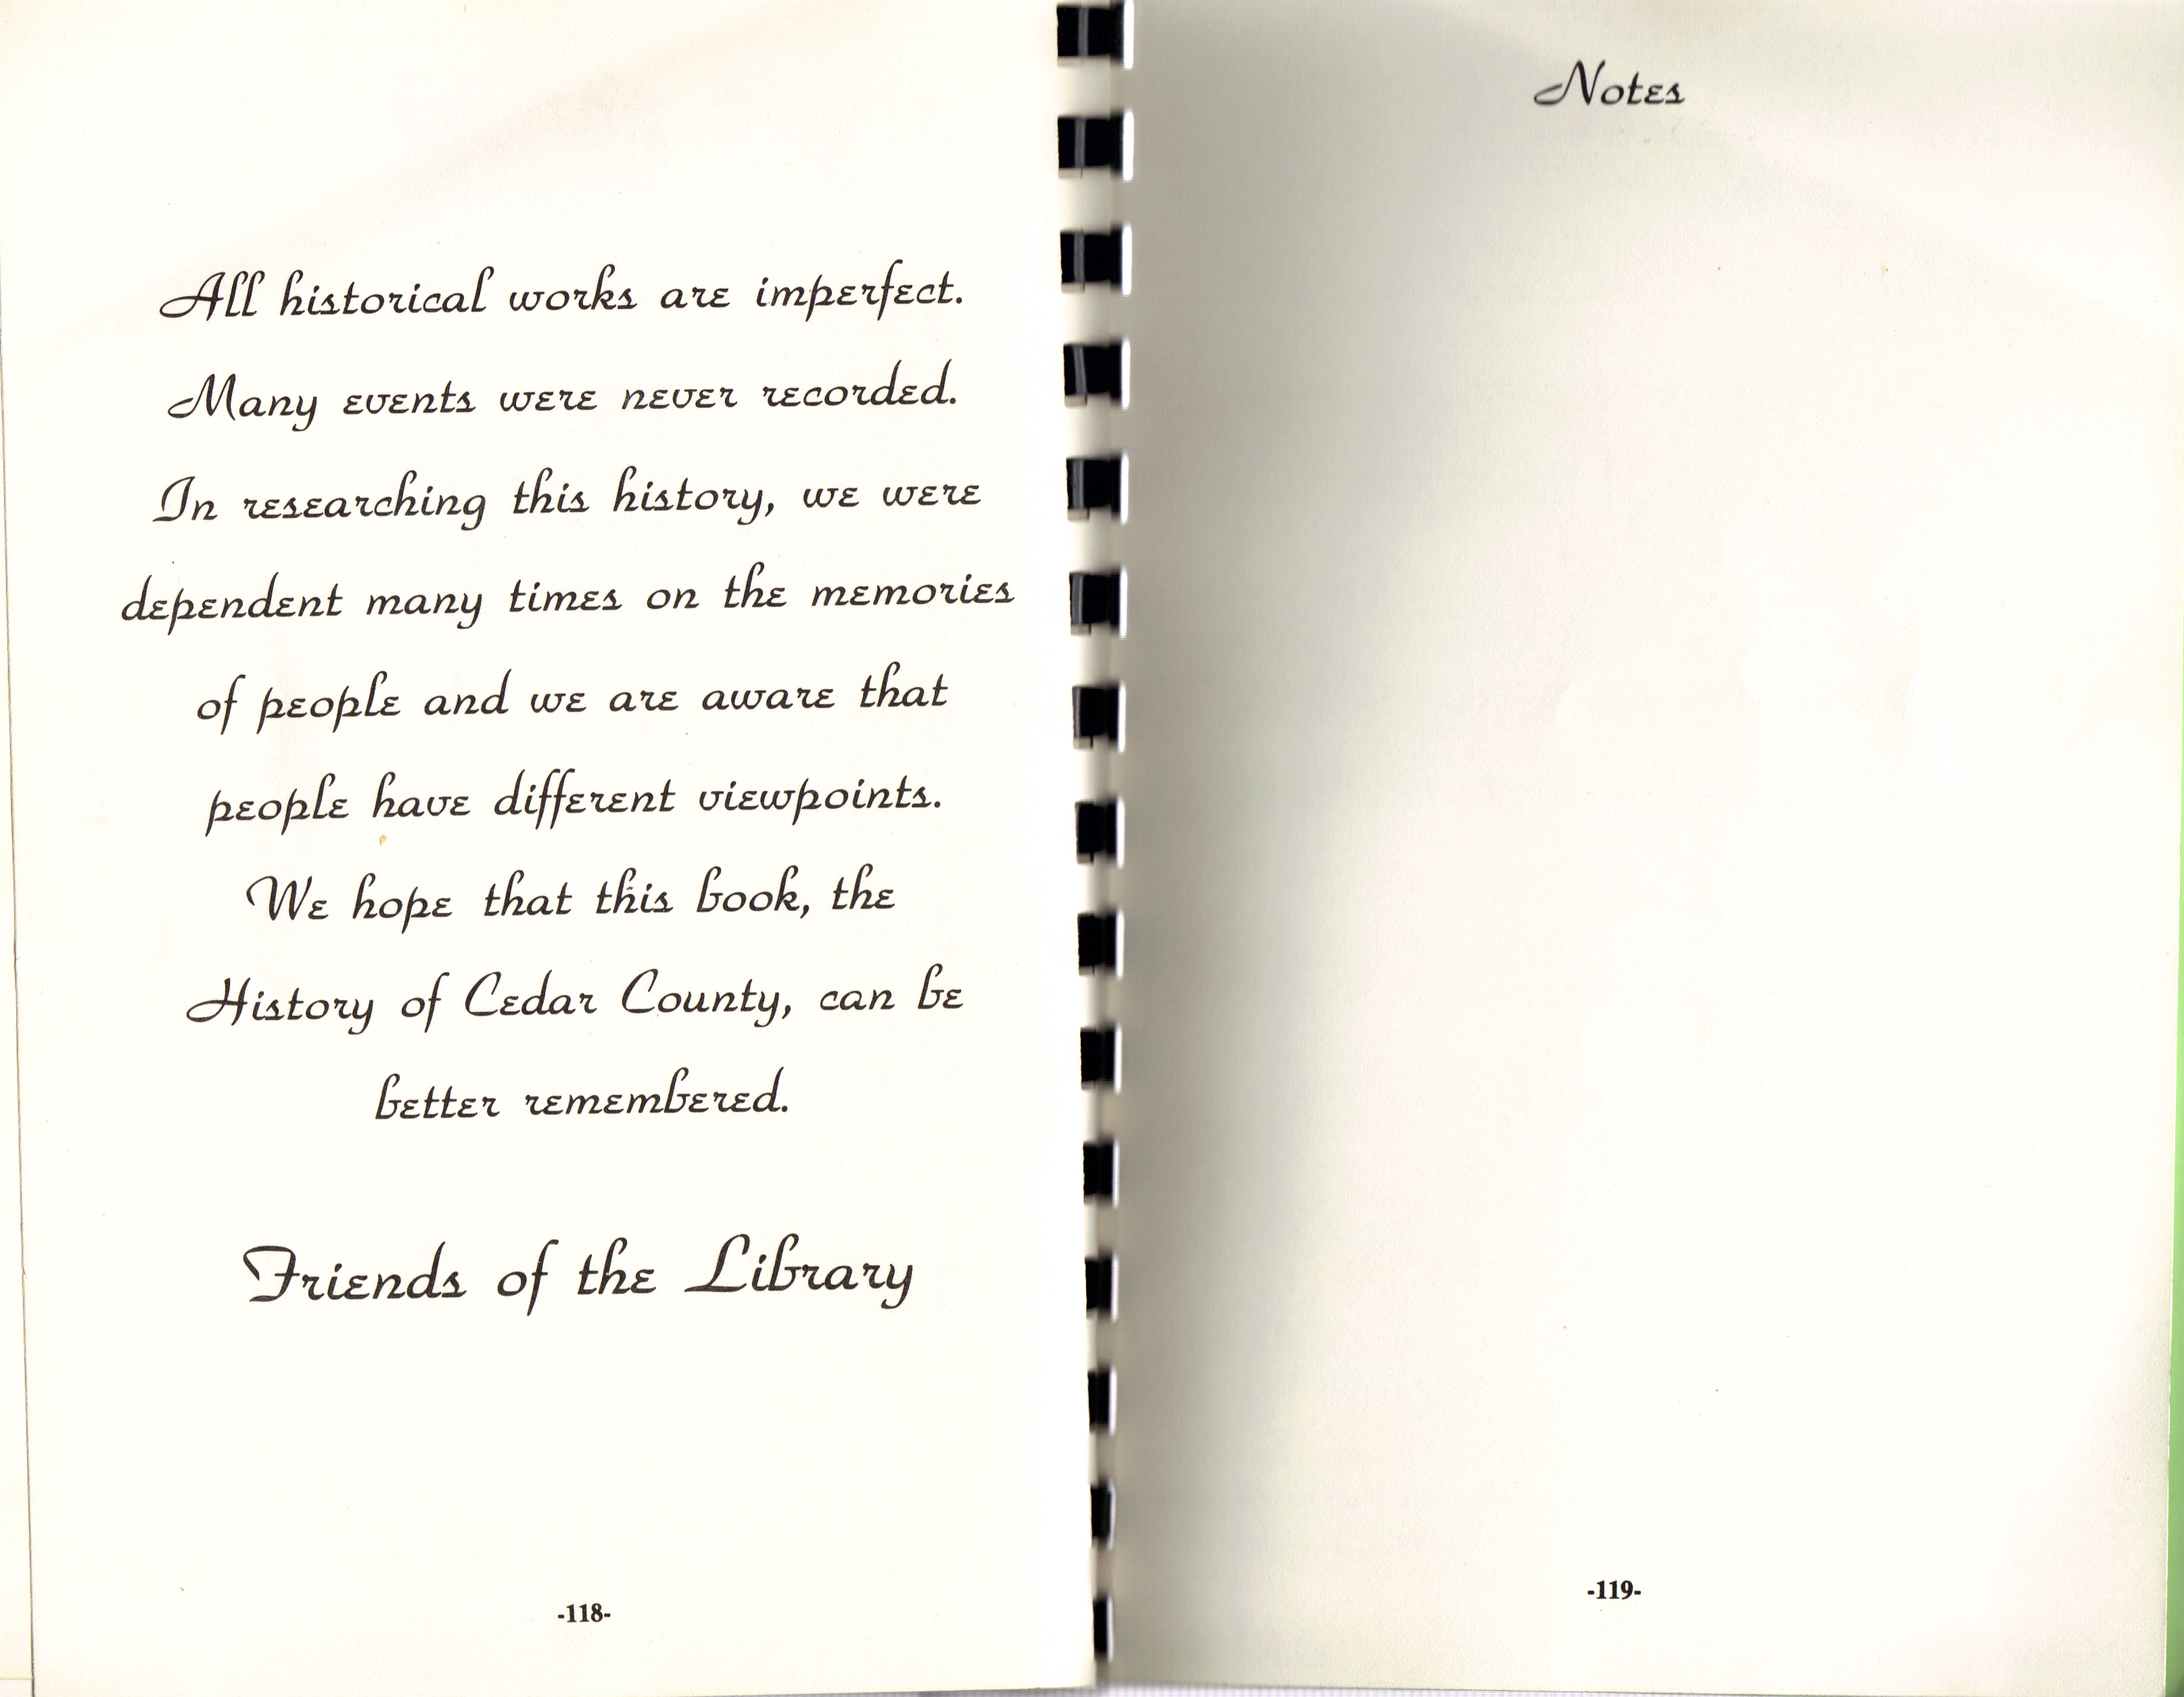 All historical works are imperfect.
Many events were never recorded.
In researching this history, we were
dependent many times on the memories
of people and we are aware that
people have different viewpoints.
We hope that this book, the
History of Cedar County, can be
better remembered.
Friends of the Library
-118-
Notes
-119-